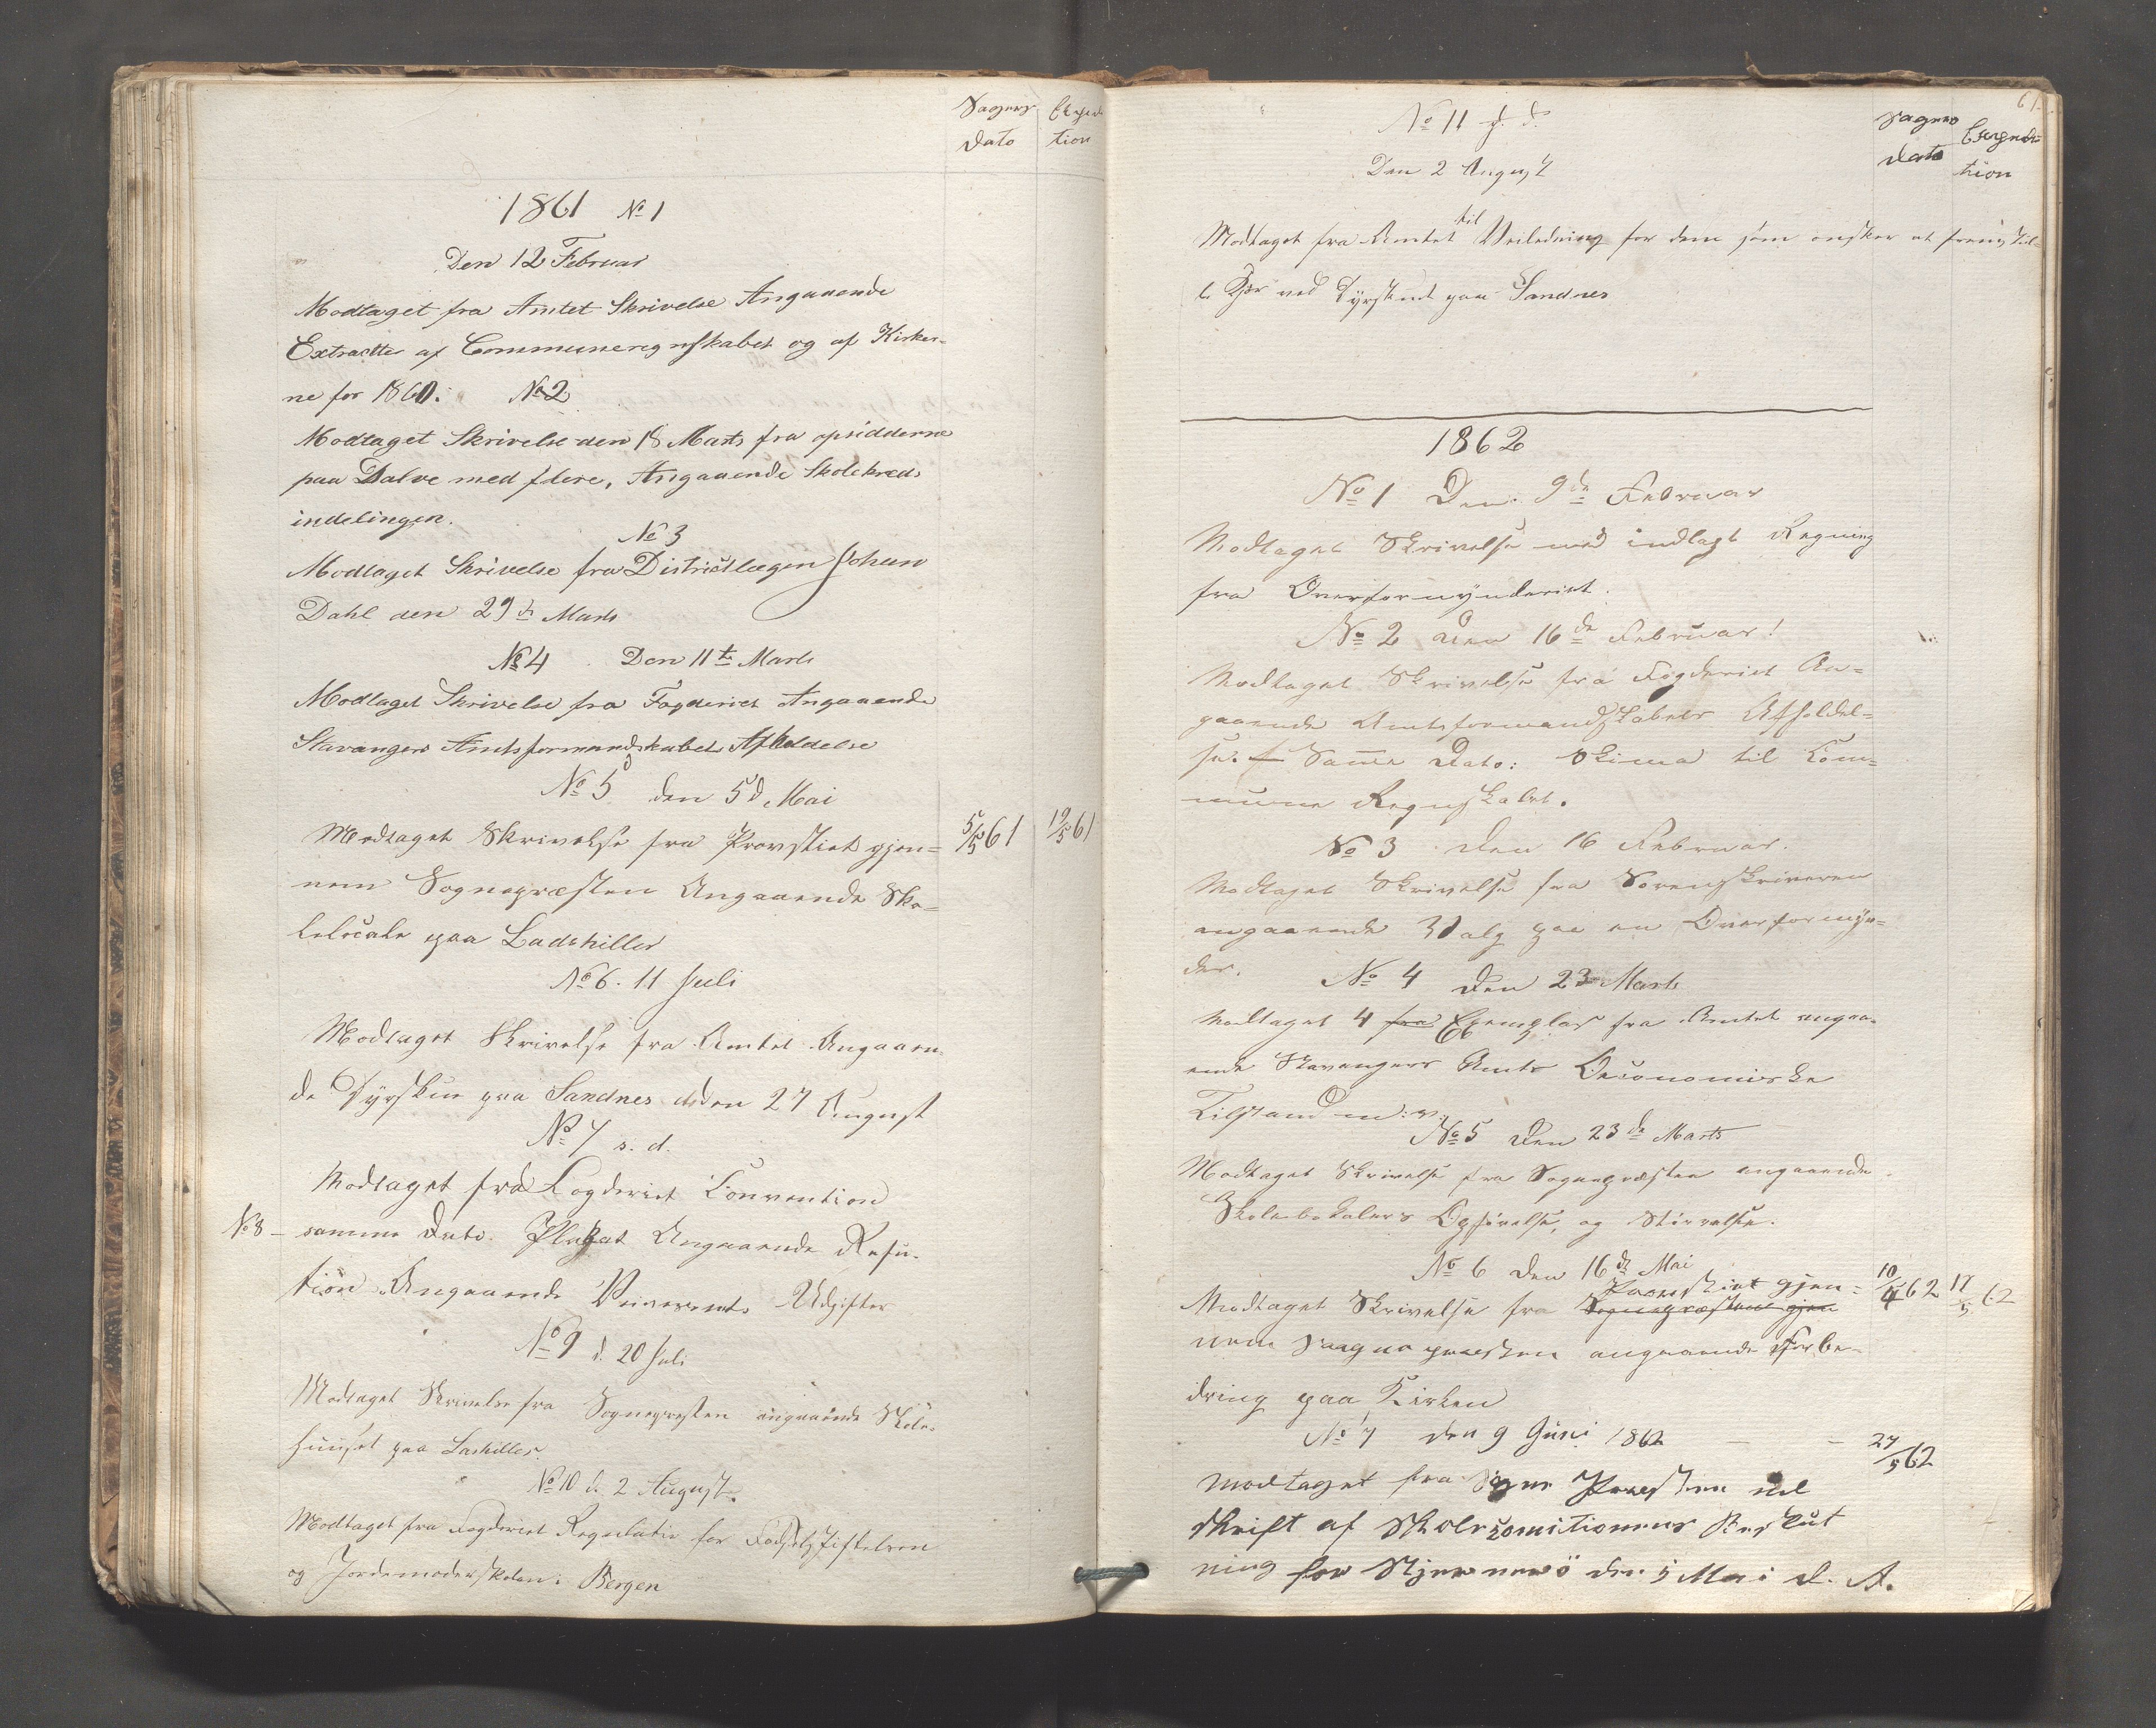 Sagens Expedi
Dato tion
1861 No 1
Den 12 Februar
Modtaget fra Amtet Skrivelse Angaaende
Extractter af Communeregnskabet og af Kirker-
ne for 1860. No 2
Modtaget Skrivelse den 18 Marts fra opsidderne
paa Dalve med flere, Angaaende Skolekreds
indelingen.
No 3
Modtaget Skrivelse fra Districtlægen Johan
Dahl den 29de Marts
No 4 Den 11te Marts
Modtaget Skrivelse fra Fogderiet Angaaende
Stavangers Amtsformandskabets Afholdelse
No 5 den 5d Mai
Modtaget Skrivelse fra Provstiet gjen= 5/5 61 19/5 61
nem Sognepræsten Angaaende Sko=
lelocale paa Ladehiller
No 6. 11 Juli
Modtaget Skrivelse fra Amtet Angaaen-
de Dyrskue paa Sandnes den 27 August
No 7 s. d.
Modtaget fra Fogderiet Convention
No 8 - samme Dato. Plakat Angaaende Resu-
tion Angaaende Udgifter
No 9 d. 20 Juli
Modtaget Skrivelse fra Sognepresten angaaende Skole-
huuset paa Lashiller.
No 10 d. 2 August.
Modtaget fra Fogderiet Regulativ for Fødselsstiftelsen
og Jordemoderskolen i Bergen
61
Sagens Expedi=
dato tion
No 11 s. d.
Den 2 August
Modtaget fra Amtet til Veiledning for dem som ønsker at fremstil-
le ved Dyrskuet paa Sandnes
1862
No 1 Den 9de Februar
Modtaget Skrivelse med indlagt Regning
fra Overformynderiet.
No 2 den 16de Februar!
Modtaget Skrivelse fra Fogderiet An=
gaaende Amtsformandskabets Afholdel=
se. Samme Dato: Skima til Com=
mune Regnskabet.
No 3 den 16 Februar.
Modtaget Skrivelse fra Sorenskriveren
angaaende Valg paa en Overformyn=
der. No 4 den 23 Marts
Modtaget 4 fra Exemplar fra Amtet angaa-
ende Stavangers Amts Oeconomiske
Tilstand m: v:
No 5 den 23de Marts
Modtaget Skrivelse fra Sognepræsten angaaende
Skolelokalers Opførelse, og Størrelse.
No 6 den 16de Mai
Modtaget Skrivelse fra Sognepræsten gjen Provstiet gjen= 10/4 62 17/5 62
nem Saagnepræsten angaaende Forbe-
dring paa Kirken
No 7 den 9 Juni 1862 — — 27/5 62
modtaget fra Sogne Præsten ud
skrift af Skolecomitionens Beslut
ning for Stjernerö den 5 Mai d. A.